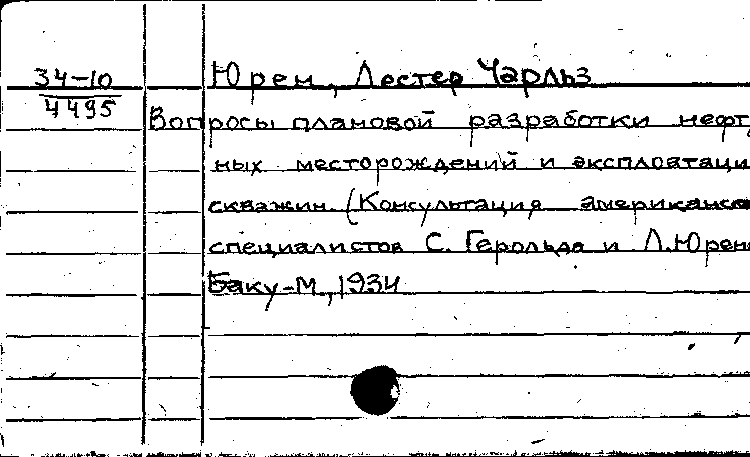 34-10
4495
Юрен, Лестер Чарльз
Вопросы плановой разработки нефт
ных месторождений и эксплоатаци
скважин (Консультация американск
специалистов С. Герольда и Л.Юрен
Баку-М, 1934